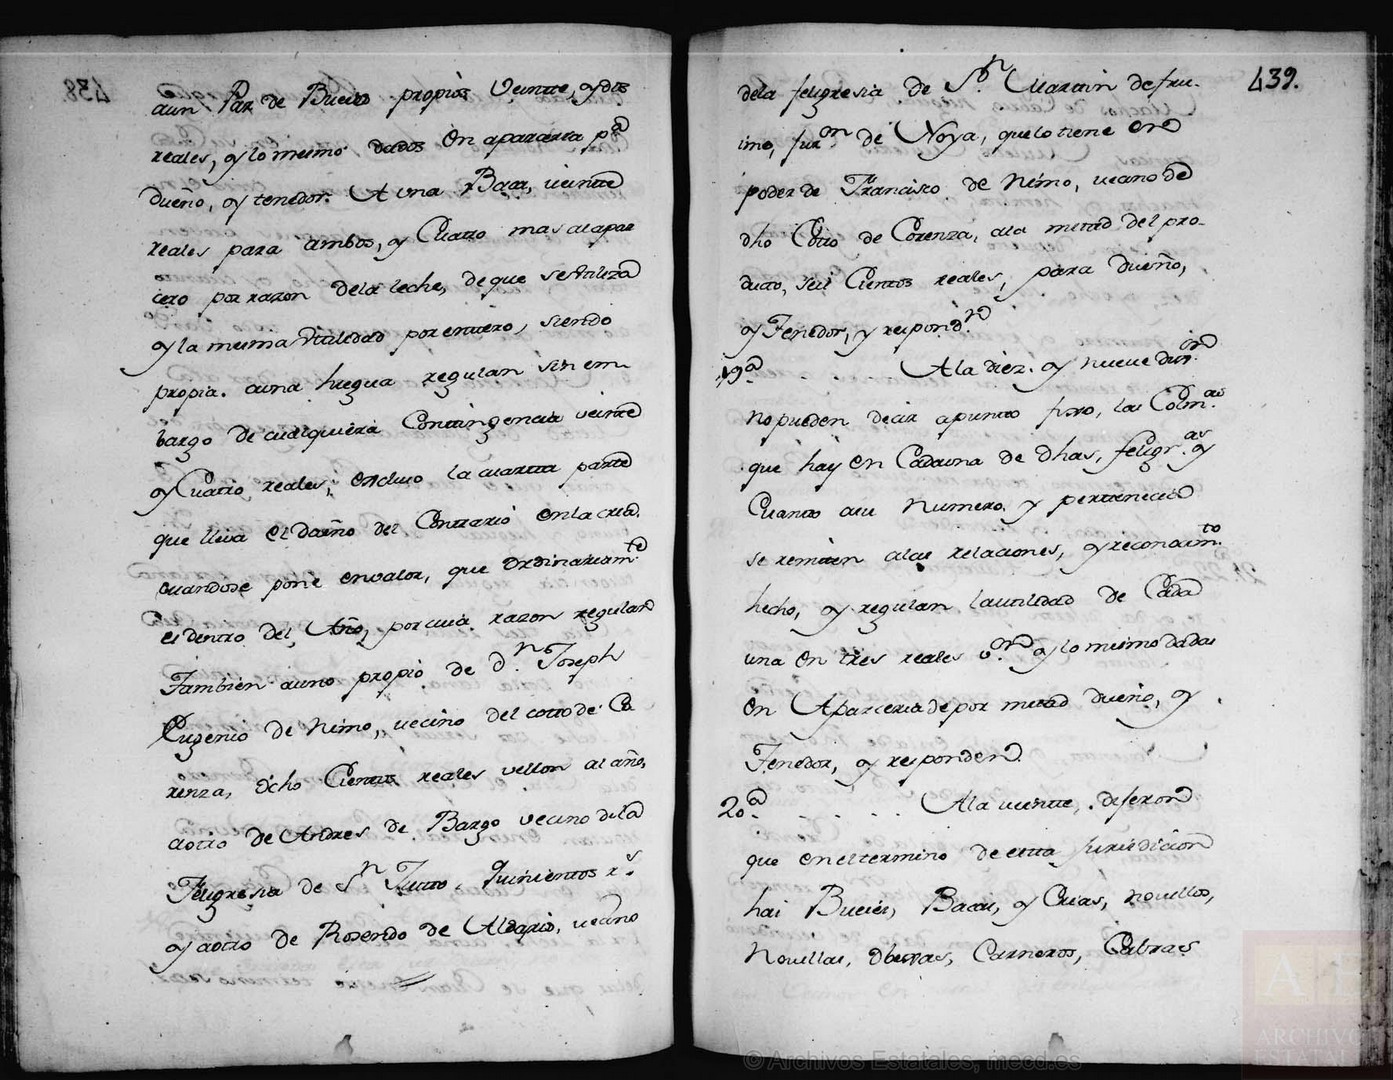 aun Par de Bueies propios Veintte, y dos
reales, y lo mesmo dados en aparzeria p.ª
dueño, y tenedor. A una Baca, veintte
reales para ambos, y Cuatro mas al apar
cero por razon dela leche, de que se utiliza
y la mesma utilidad por entero, siendo
propia. auna hiegua regulan sin em-
bargo de cualquiera Contingencia veintte
y Cuatro reales, incluso la cuartta partte
que lleva el dueño del Contrario en la cria.
cuandose pone en valor, que ordinariam.te
es dentro del Año, por cuia razon regulan
Tambien auno propio de d.n Joseph
Eugenio de Nimo, vecino del cotto de Co
renza, ocho Cientos reales vellon al año,
a otro de Andres de Bargo vecino dela
Feligresia de S.n Justo, quinientos r.s
y aotro de Rosendo de Alboris, vecino
439.
dela feligresia de S.n Martin de fru-
ime, jur.on de Noya, que lo tiene en
poder de Francisco de Nimo, vecino de
dho Cotto de Corenza, ala mitad del pro-
ducto, seis Cientos reales, para dueño,
y Tenedor, y respond.n
19ª Ala diez, y nueve dixr.on
no pueden decir apunto fixo, las Colm.as
que hay en Cadauna de dhas, feligr.as y
Cuanto asu Numero, y pertenecido
se remiten alas relaciones, y reconocim.to
hecho, y regulan la utilidad de Cada
una en tres reales v.on y lo mesmo dadas
en Aparceria de por mitad dueño, y
Tenedor, y responden.
20.ª Ala veintte, dixeron
que en el termino de esta Jurisdicion
hai Bueies, Bacas, y Crias, novillos,
Novillas, obexas, Carneros, Cabras
© Archivos Estatales, mecd.es
ARCHIVOS
ESTATALES